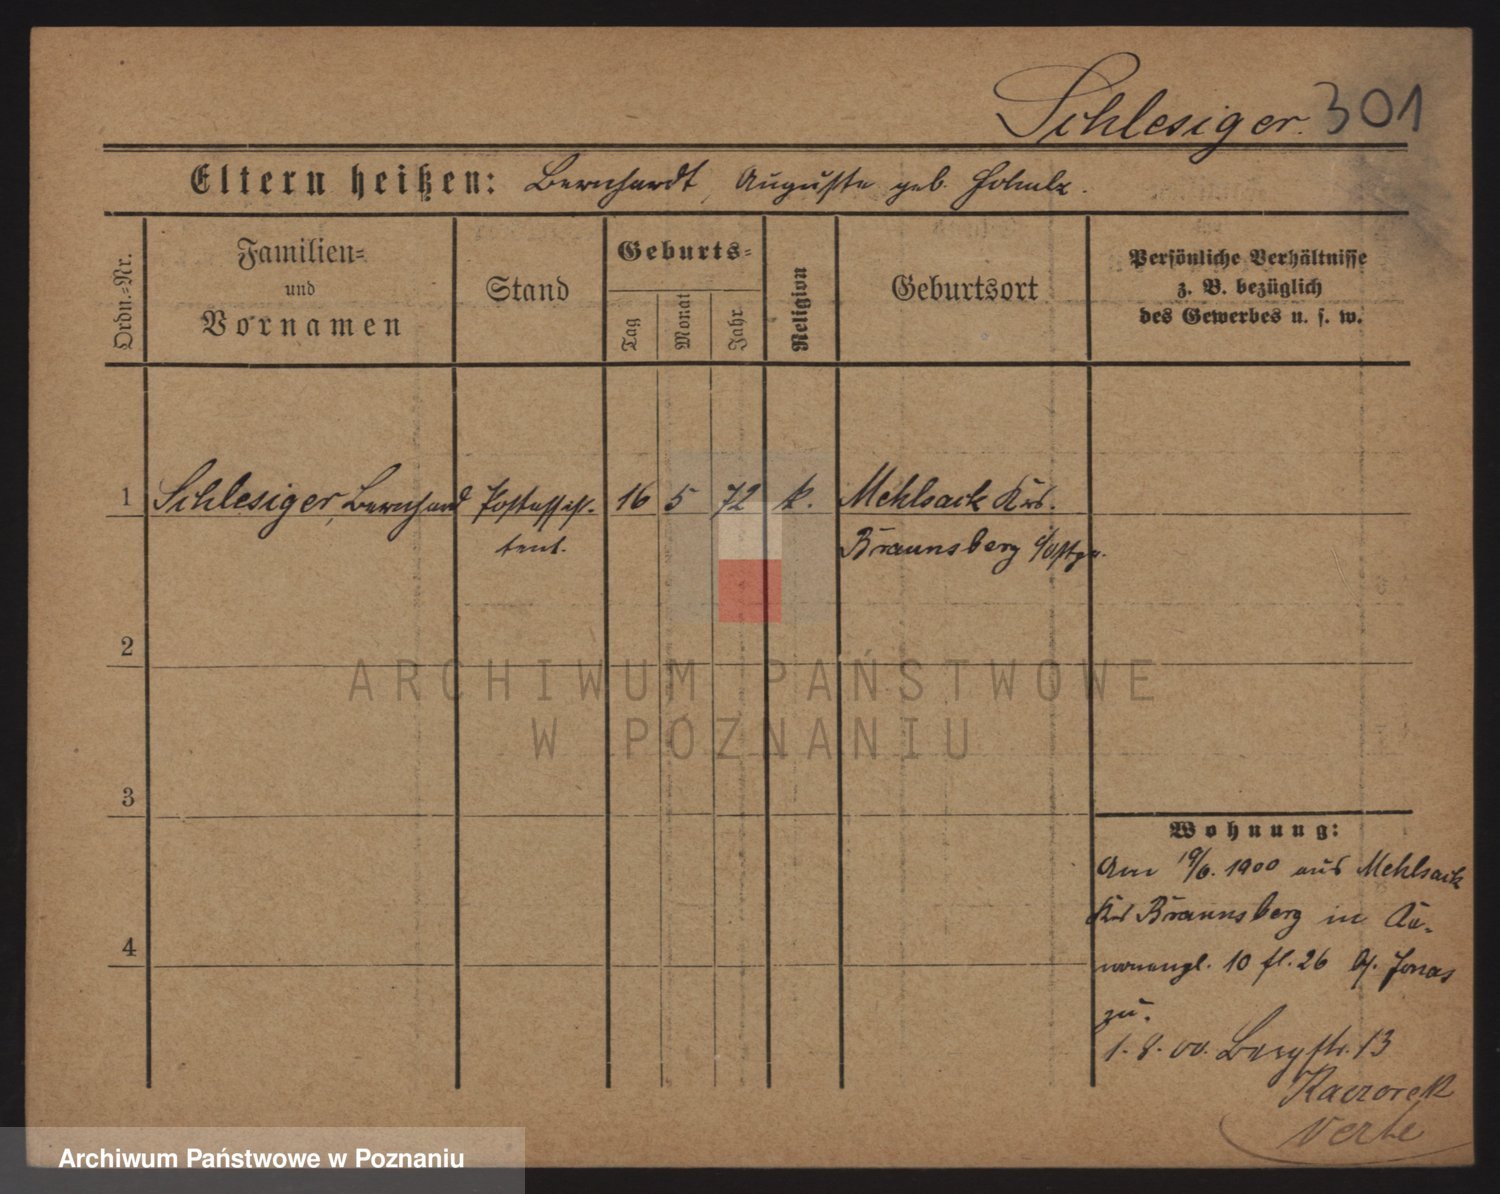 Schlesiger. 301
Eltern heißen: Bernhardt, Auguste geb.
Ordn.-Nr.
Familien-
und
Vornamen
Stand
Geburts-
Tag
Monat
Jahr
Religion
Geburtsort
Persönliche Verhältnisse
z. B. bezüglich
des Gewerbes u. s. w.
1 Schlesiger, Bernhard Postassis- 16 5 72 k. Mehlsack Krs.
tent. Braunsberg i/Ostpr.
2
ARCHIWUM PAŃSTWOWE
W POZNANIU
3
Wohnung:
Am 1900 aus Mehlsack
Krs Braunsberg in
4
10 fl. 26 b/. Jonas
zu.
1. 8. 00. Bergstr. 13
Kaczorek
Archiwum Państwowe w Poznaniu